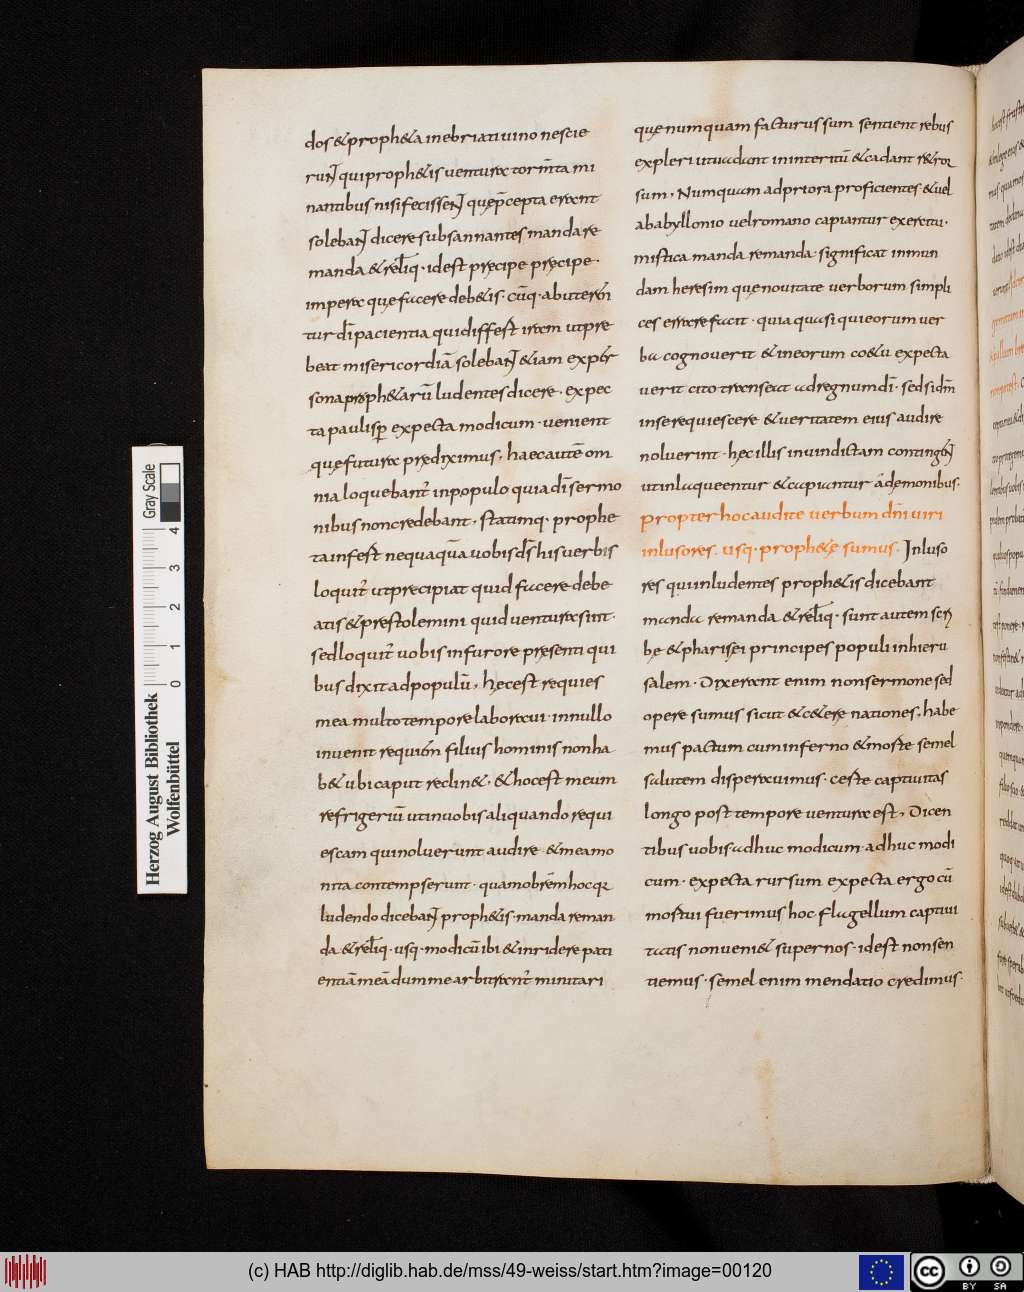 dos & proph&a inebriati uino nescie
runt qui proph&is uentura torm̅ta mi
nantibus nisi fecissent quę p̅cepta erant
solebant dicere subsannantes manda re
manda & reliq· id est pręcipe pręcipe·
impera quę facere deb&is· cu̅q· abuteren
tur di̅ pacientia qui differt iram ut pre
beat misericordia̅ solebant &iam ex per
sona proph&aru̅ ludentes dicere· expec
ta paulisp̲ expecta modicum· uenient
quę futura prędiximus, haec aute̅ om
nia loquebant̃ in populo quia di̅ sermo
nibus non credebant· statimq· prophe
ta infert nequaqua̅ uobis ds̅ his uerbis
loquit̃ ut precipiat quid facere debe
atis & prestolemini quid uentura sint·
sed loquit̃ uobis in furore presenti qui
bus dixit ad populu̅, hęc est requies
mea multo tempore laboraui· in nullo
inueni requiem filius hominis non ha
b& ubi caput reclin&· & hoc est meum
refrigeriu̅ ut in uobis aliquando requi
escam qui noluerunt audire & mea mo
nita contempserunt· quamobrem hocq
ludendo dicebant proph&is· manda reman
da & reliq· usq· modicu̅ ibi & inridere pati
entia̅ mea̅ dum me arbitrant̃ minitari
quę numquam facturus sum sentient rebus
expleri ut uadant in interitu̅ & cadant r&ror
sum· Numquam ad priora proficientes & uel
a babyllonio uel romano capiantur exercitu·
mistica manda remanda significat in mun
dam heresim quę nouitate uerborum simpli
ces errare facit· quia quasi qui eorum uer
ba cognouerit & in eorum co&u expecta
uerit cito transeat ad regnum di̅· sed si dm̅
in se requiescere & ueritatem eius audire
noluerint· hęc illis in uindictam contingent
ut inlaqueentur & capiantur a demonibus·
propter hoc audite uerbum dn̅i uiri
inlusores· usq· proph&ę sumus· Inluso
res qui inludentes proph&is dicebant
manda remanda & reliq· sunt autem scri
bę & pharisei principes populi in hieru
salem· Dixerant enim non sermone sed
opere sumus sicut & c&ere nationes, habe
mus pactum cum inferno & morte semel
salutem disperauimus· certe captiuitas
longo post tempore uentura est, Dicen
tibus uobis adhuc modicum· adhuc modi
cum· expecta rursum expecta ergo cu̅
mortui fuerimus hoc flagellum captiui
tatis non ueni& super nos· id est non sen
tiemus· semel enim mendatio credimus·
Herzog August Bibliothek
Wolfenbüttel
Gray Scale
0 1 2 3 4
(c) HAB http://diglib.hab.de/mss/49-weiss/start.htm?image=00120
cc BY SA